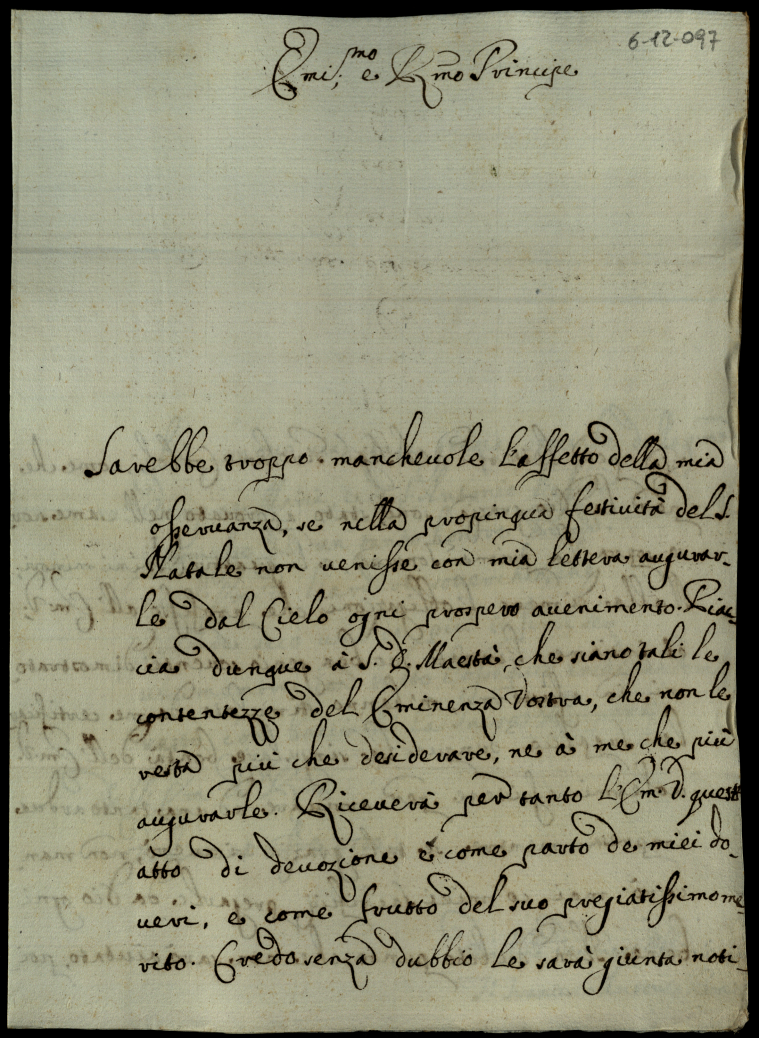 6-12-097
Emi.mo e Rmo Principe
Sarebbe troppo manchevole l'affetto della mia
osservanza, se nella propinqua festività del S.
Natale non venisse con mia lettera augurar-
le dal Cielo ogni prospero avenimento. Piac-
cia dunque à S. D. Maestà, che siano tali le
contentezze del Eminenza Vostra, che non le
resta più che desiderare, ne à me che più
augurarle. Riceverà per tanto l'Em. V. questo
atto di devozione e come parto de miei do-
veri, e come frutto del suo pregiatissimo me-
rito. Credo senza dubbio le sarà giunta noti-